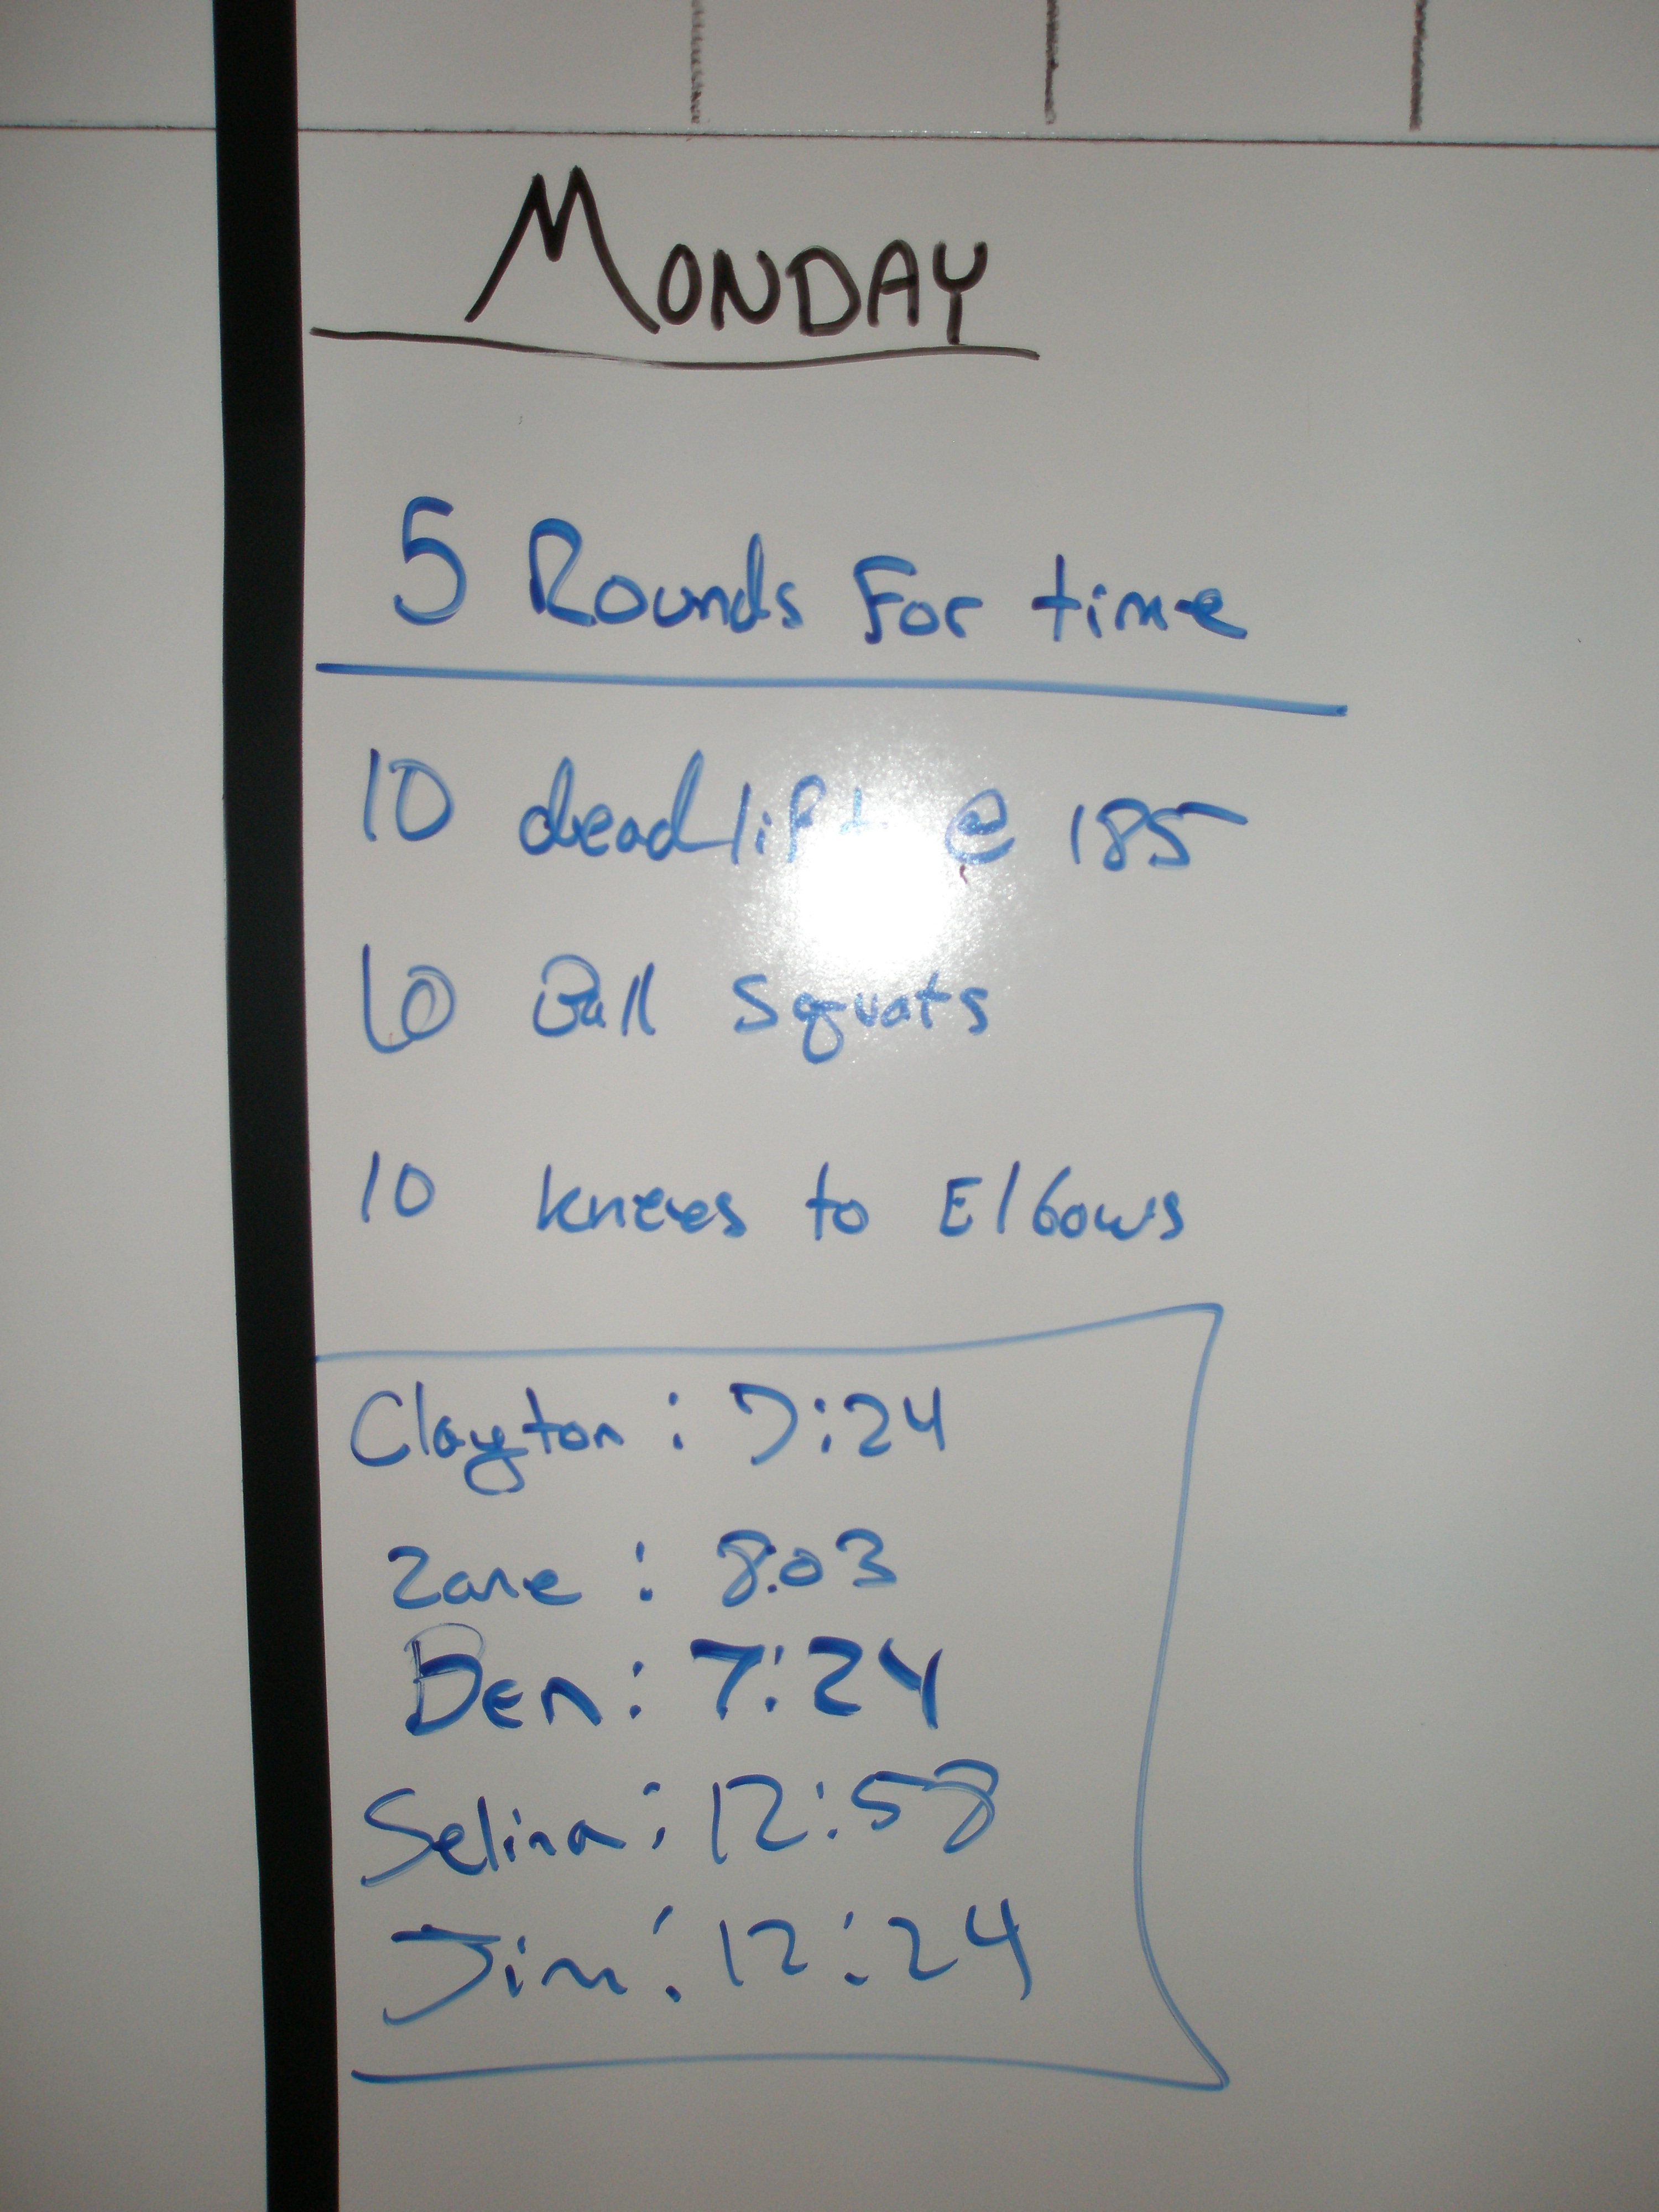 MONDAY
5 Rounds For time
10 deadlift @ 185
10 Ball Squats
10 knees to Elbows
Clayton : 7:24
Zane : 8:03
Ben : 7:24
Selina : 12:58
Jim : 12:24